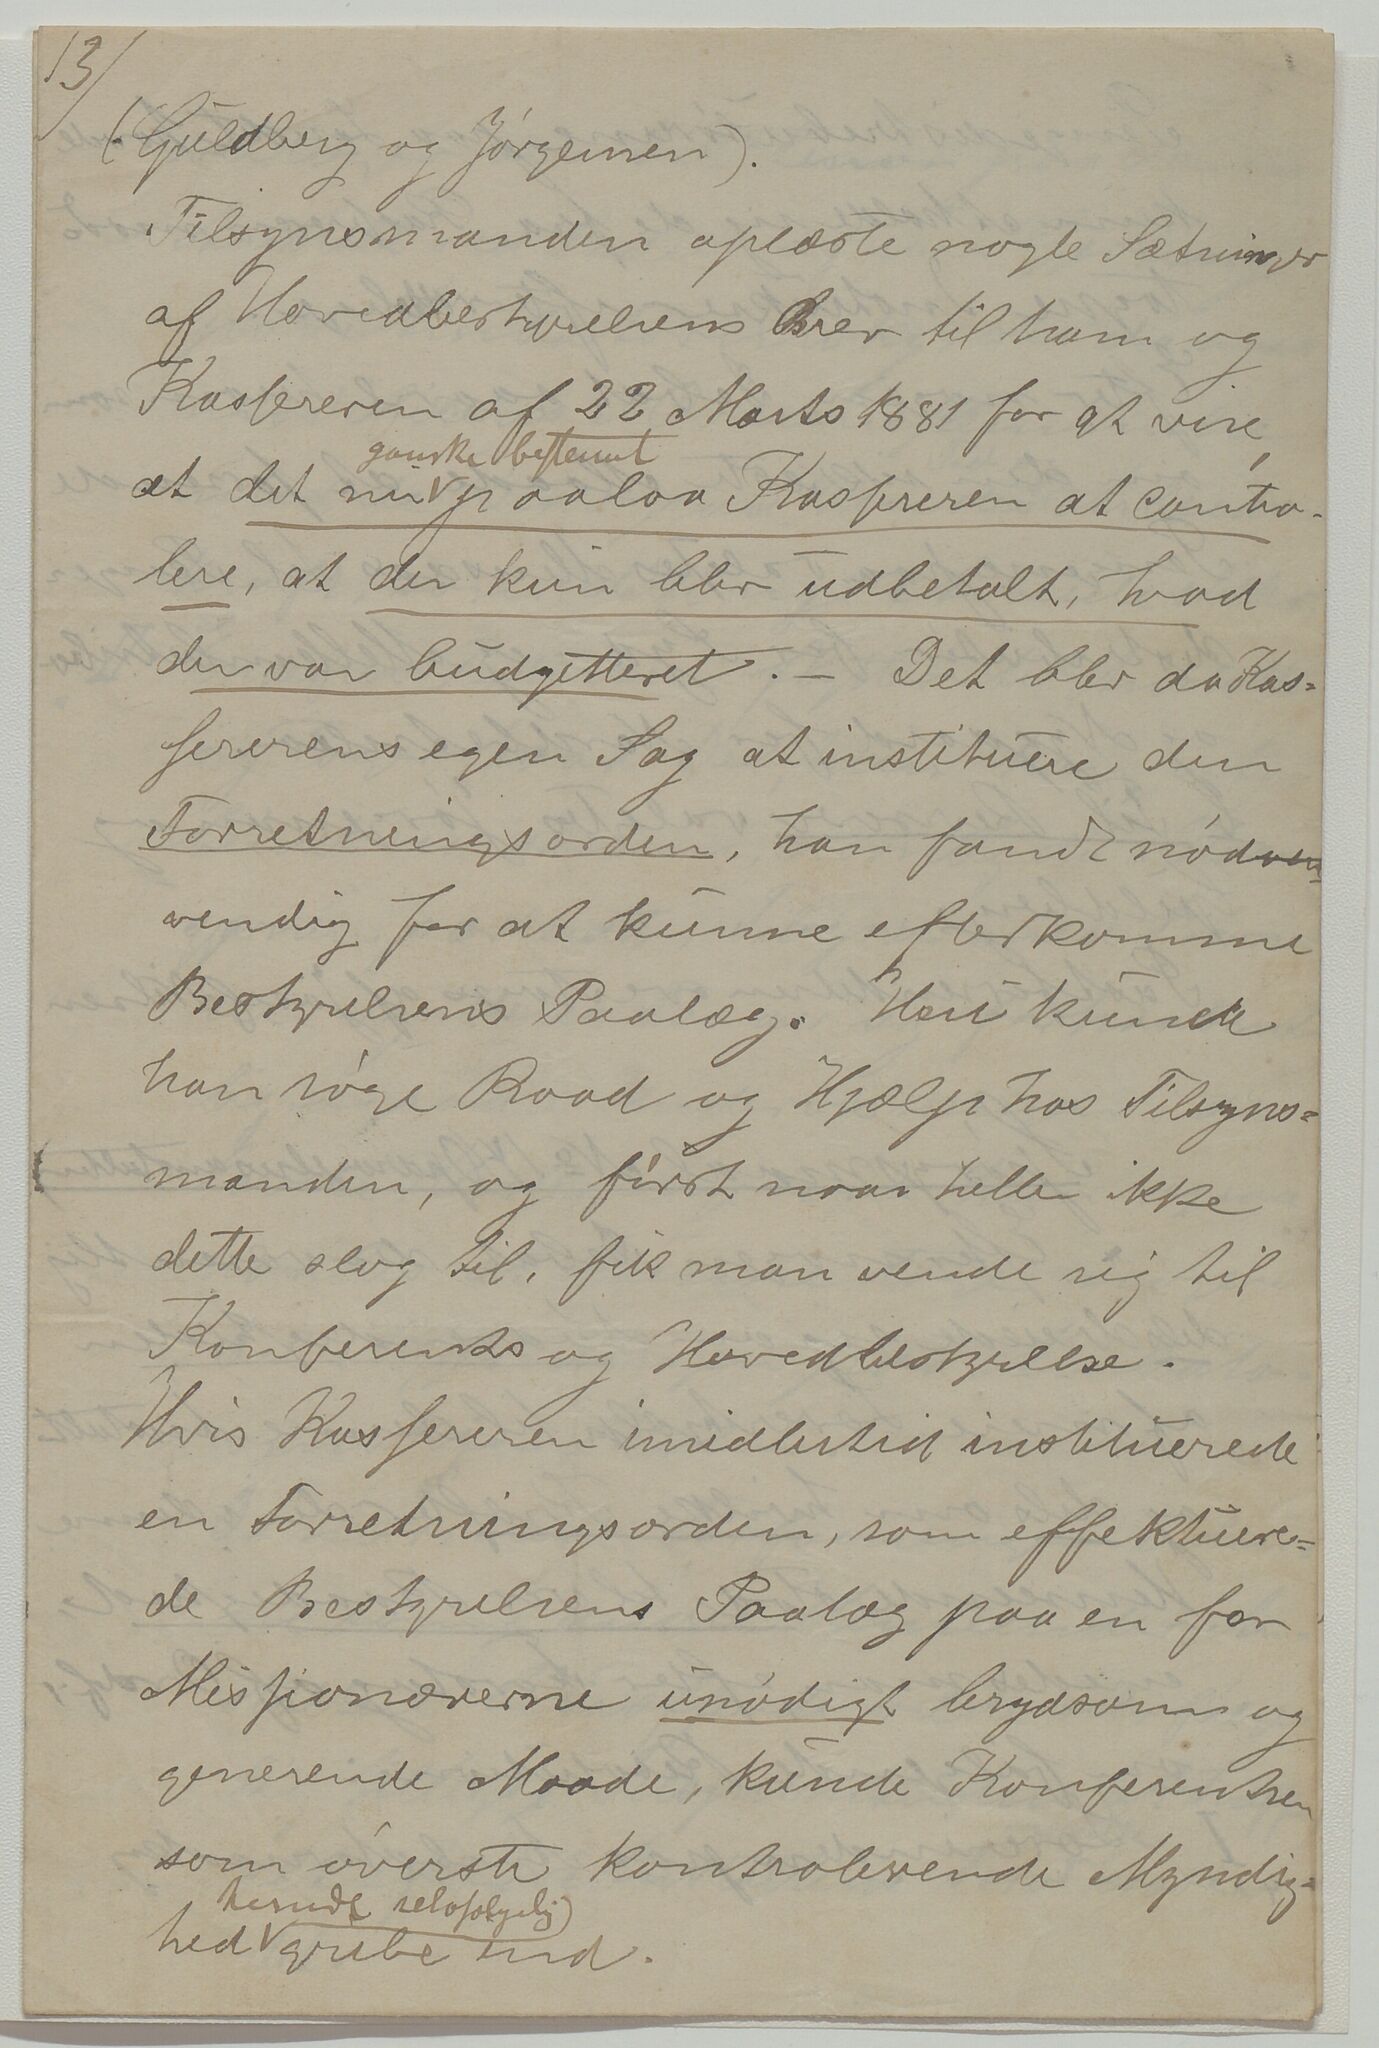 13/
(Guldberg og Jørgensen).
Tilsynsmanden oplæste nogle Sætninger
af Hovedbestyrelsens Brev til ham og
Kassereren af 22 Marts 1881 for at vise,
ganske bestemt
at det nu paalaa Kassereren at contro-
lere, at der kun blev udbetalt, hvad
der var budgetteret. – Det blev da Kas=
sererens egen Sag at instituere den
Forretningsorden, han fandt nødven
vendig for at kunne efterkomme
Bestyrelsens Paalæg. Heri kunde
han søge Raad og Hjælp hos Tilsyns=
manden, og først naar heller ikke
dette slog til, fik man vende sig til
Konferents og Hovedbestyrelse.
Hvis Kassereren imidlertid instituerede
en Forretningsorden, som effektuere=
de Bestyrelsens Paalæg paa en for
Missionærerne unødigt brydsom og
generende Maade, kunde Konferentsen
som øverste kontrolerende Myndig=
herude selvfølgelig
hed gribe ind.